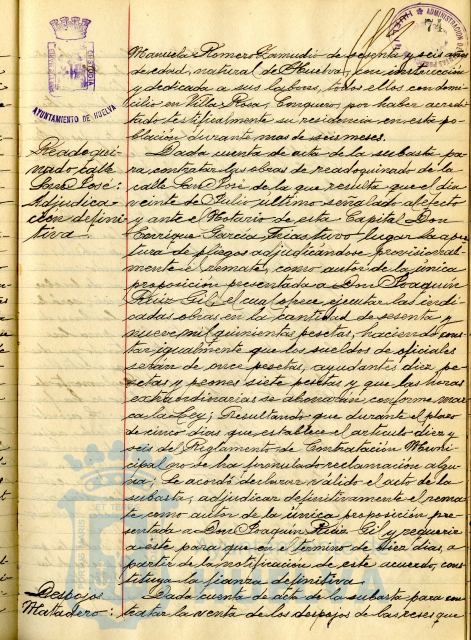 74
AYUNTAMIENTO DE HUELVA
Manuela Romero Zamudio de sesenta y seis años
de edad, natural de Huelva, con instrucción
y dedicada a sus labores, todos ellos con domi-
cilio en Villa Rosa, Conquero, por haber acredi-
tado testificalmente su residencia en esta po-
blación durante mas de seis meses.
Readoqui-
nado calle
San José:
Adjudica-
ción defini-
tiva:
Dada cuenta de acta de la subasta pa-
ra contratar las obras de readoquinado de la
calle San José de la que resulta que el día
veinte de Julio último señalado al efecto
y ante el Notario de esta Capital Don
Enrique García Frias tuvo lugar la aper-
tura de pliegos adjudicándose provisional-
mente el remate, como autor de la única
proposición presentada a Don Joaquín
Ruiz Gil, el cual ofrece ejecutar las indi-
cadas obras en la cantidad de sesenta y
nueve mil quinientas pesetas, haciendo cons-
tar igualmente que los sueldos de oficiales
serán de once pesetas, ayudantes diez pe-
setas y peones siete pesetas y que las horas
extraordinarias se abonarán conforme mar-
ca la Ley; Resultando que durante el plazo
de cinco días que establece el artículo diez y
seis del Reglamento de Contratación Muni-
cipal no se ha formulado reclamación algu-
na; Se acordó declarar válido el acto de la
subasta, adjudicar definitivamente el rema-
te como autor de la única proposición pre-
sentada a Don Joaquín Ruiz Gil y requerir
a este para que en el término de diez días, a
partir de la notificación de este acuerdo, cons-
tituya la fianza definitiva.
Despojos
Matadero:
Dada cuenta de acta de la subasta para con-
tratar la venta de los despojos de las reses que